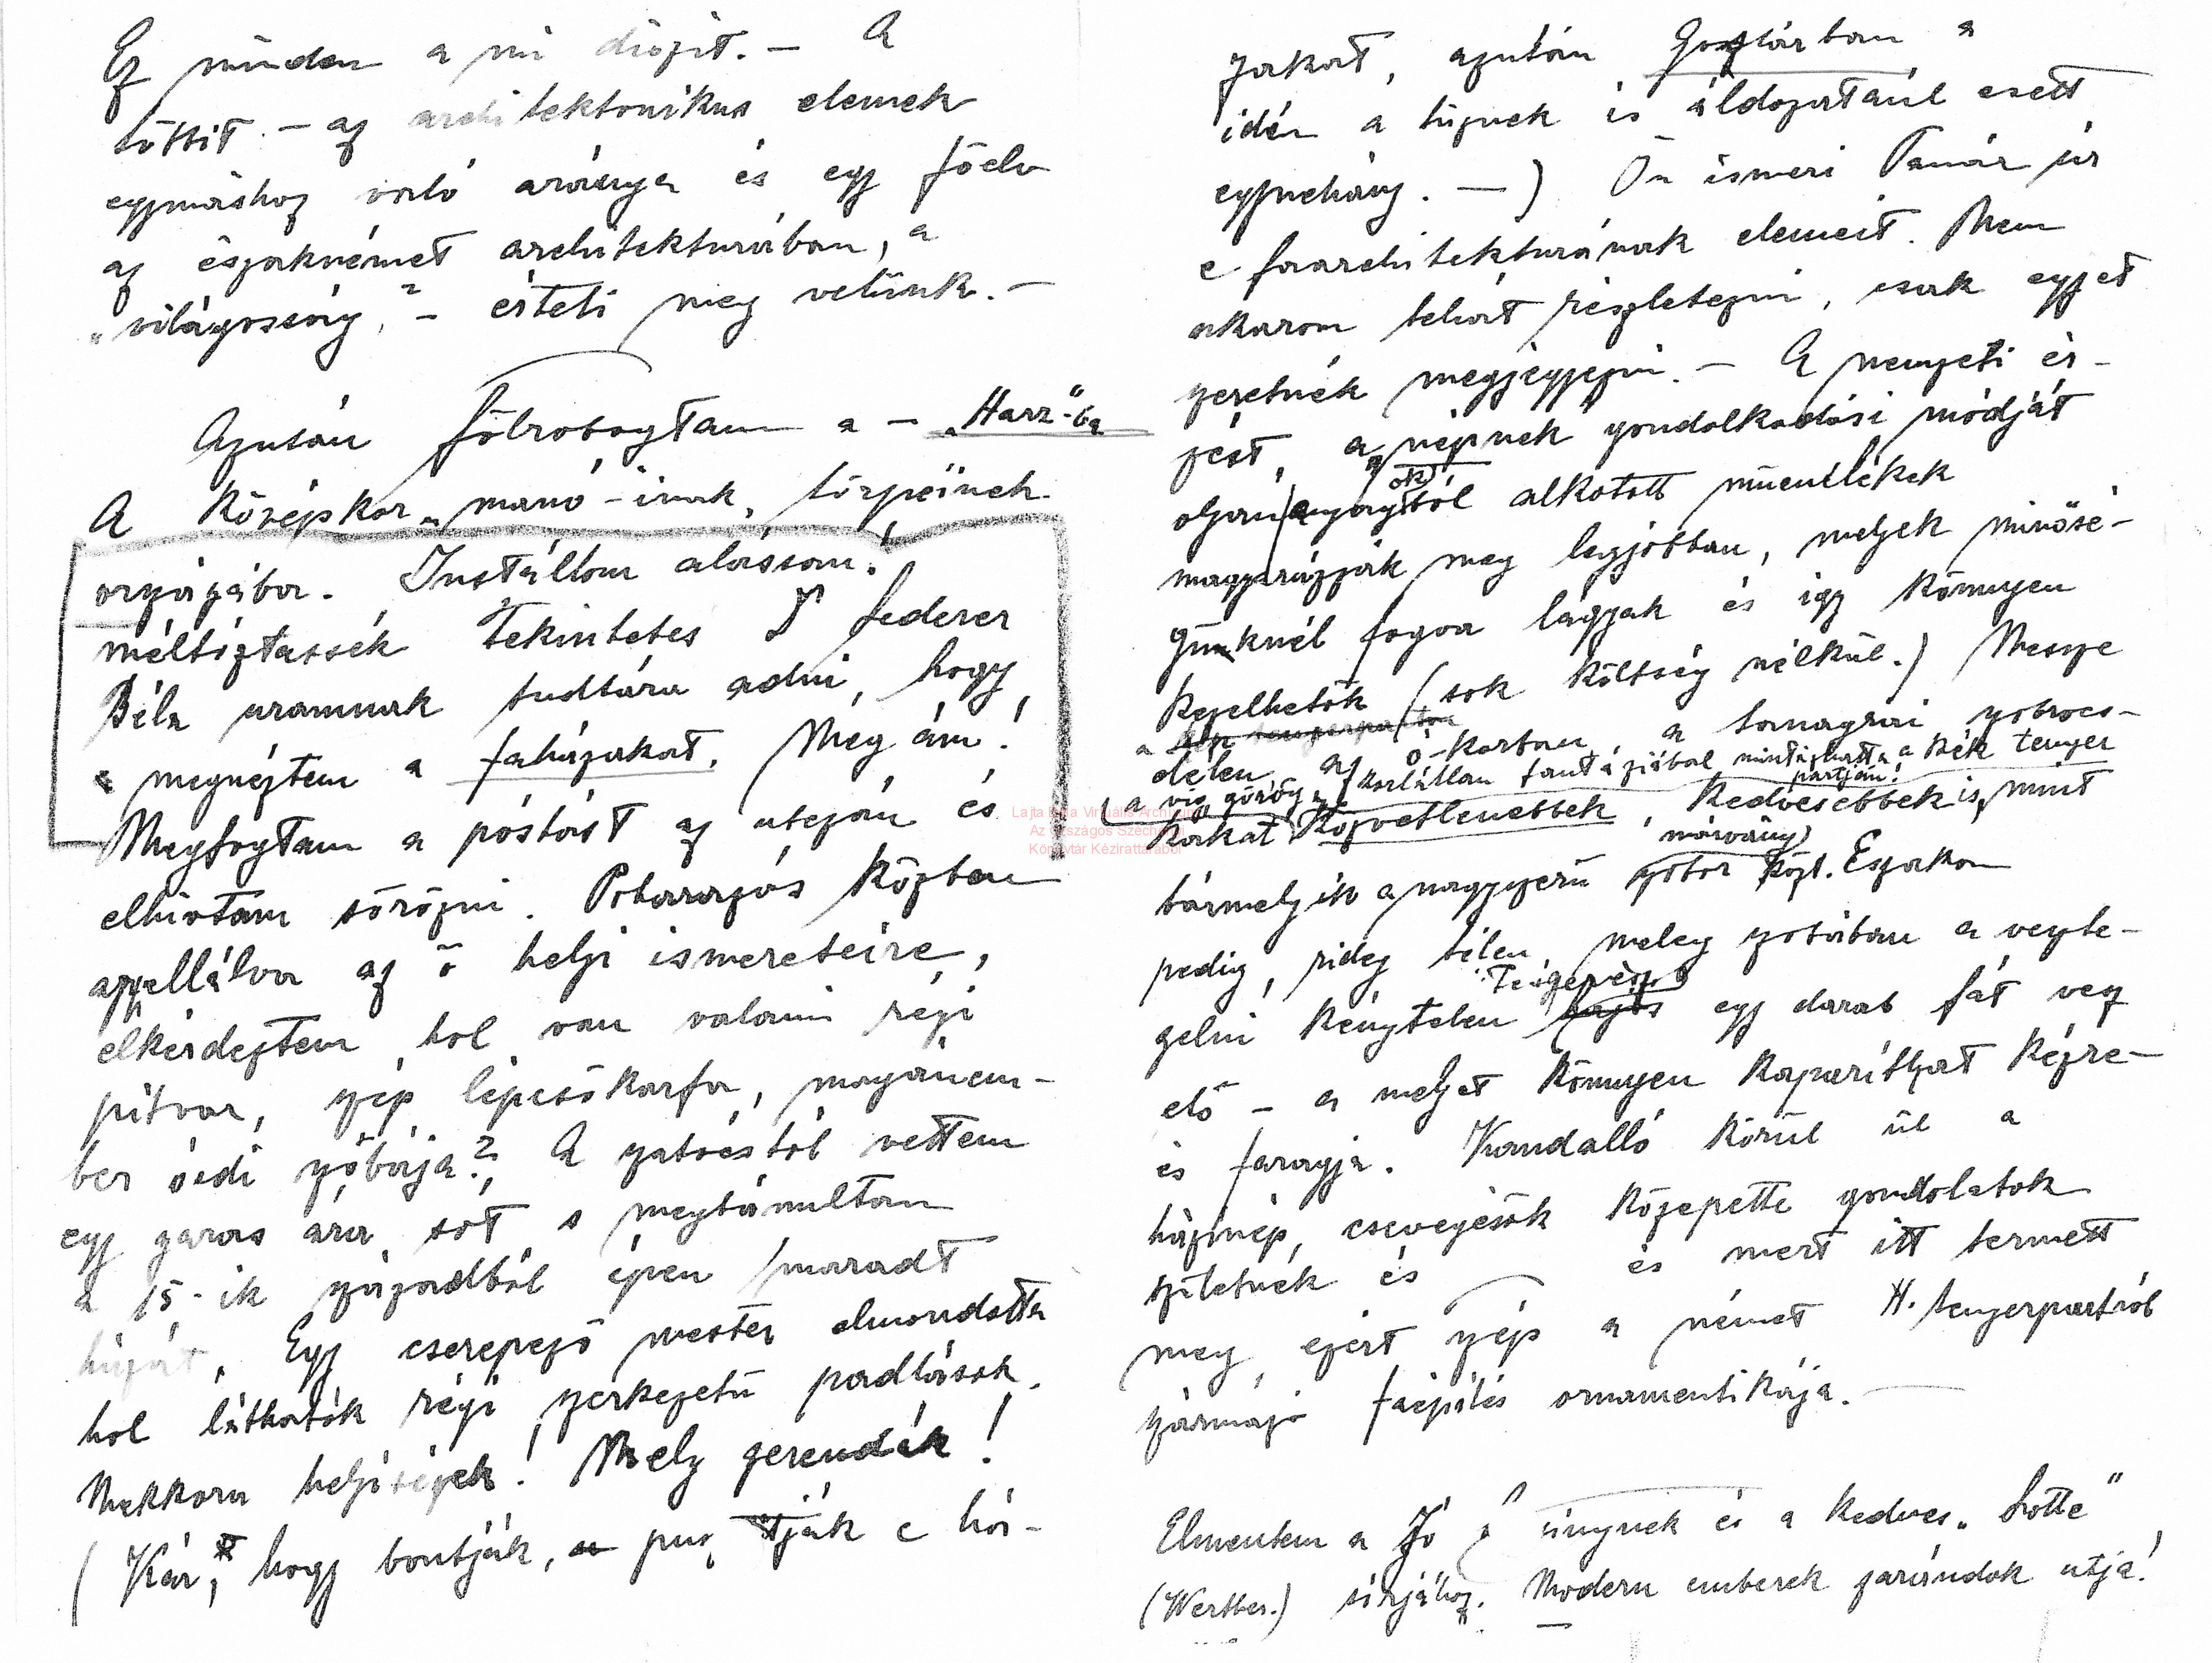 Ez minden a mi
töttit. – az architektonikus elemek
egymáshoz való aránya és egy főelv
az északnémet architekturában, a
„világosság," – érteti meg velünk. –
Azután fölrobogtam a – „Harz"-ba
A középkor „manó-inak, törpéinek
országába. Instállom alássan!
méltóztassék Tekintetes Lederer
Béla uramnak tudtára adni, hogy
megnéztem a faházakat. Még ám!
Megfogtam a póstást az utczán és
elhivtam sörözni. Poharazás közben
appellálva az ő helyi ismereteire,
elkérdeztem, hol van valami régi
pitvar, szép lépcsőkarfa, magánem-
ber ósdi szobája? A szatócstól vettem
egy garas ára sót s megbámultam
a 15-ik századból épen maradt
házát. Egy cserepező mester elmondotta
hol láthatók régi szerkezetü padlások.
Mekkora helyiségek! Mely gerendák!
(Kár, hogy bontják, pusztítják e há-
zakat, azután Goszlárban a
idén a tüznek is áldozatául esett
egynehány. –) Ön ismeri Tanár úr
e faarchitekturának elemeit. Nem
akarom tehát részletezni, csak egyet
szeretnék megjegyezni. – A nemzeti ér-
zést, a népnek gondolkodási módját
olyan anyagokból alkotott műemlékek
magyarázzák meg legjobban, melyek minősé-
güknél fogva lágyak és igy könnyen
kezelhetők (sok költség nélkül.) Messze
a
délen, az ó-korban, a tanagrai szobrocs-
(a víg görög korlátlan fantáziával mintázhatta a kék tenger partján!
kákat közvetlenebbek, kedvesebbek is, mint
bármelyik a nagyszerü márvány szobor közt. Északon
pedig, rideg télen, meleg szobában a veszte-
gelni kénytelen Tengerész egy darab fát vesz
elő – a melyet könnyen kaparíthat kézre
és faragja. Kandalló körül ül a
háznép, csevegésök közepette gondolatok
születnek és és mert itt termett
meg, ezért szép a német H. tengerpartról
származó faépítés ornamentikája. –
Elmentem a Jó sirjához és a kedves „Lotte"
(Werther.) sirjához. Modern emberek zarándok utja!
Lajta Béla Virtuális Archívum
Az Országos Széchényi
Könyvtár Kézirattárából